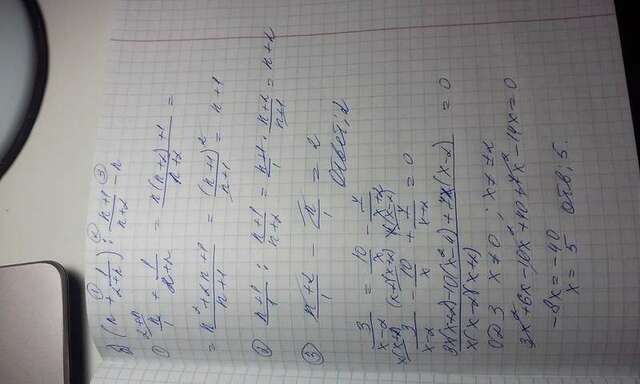 б) (n + 1/(2+n)) : (n+1)/(n+2) − n
① n/1 + 1/(2+n) = (n(n+2)+1)/(n+2) =
= (n²+2n+1)/(n+1) = (n+1)²/(n+1) = n+1
② (n+1)/1 : (n+1)/(n+2) = (n+1)/1 · (n+2)/(n+1) = n+2
③ (n+2)/1 − n/1 = 2
Ответ: 2
3/(x−2) = 10/x − 7/(x+2)
3/(x−2) − 10/x + 7/(x+2) = 0
(3x(x+2)−10(x²−4)+7x(x−2))/(x(x−2)(x+2)) = 0
ОДЗ x≠0 ; x≠±2
3x²+6x−10x²+40+7x²−14x=0
−8x=−40
x=5 отв: 5.